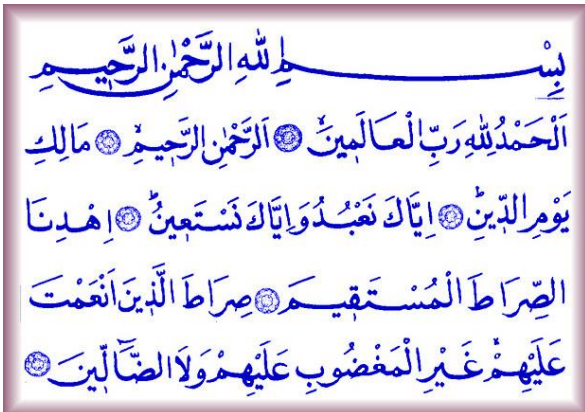 بِسْمِ اللهِ الرَّحْمٰنِ الرَّحِيمِ
اَلْحَمْدُ لِلّٰهِ رَبِّ الْعَالَمِينَۙ ۝ اَلرَّحْمٰنِ الرَّحِيمِۙ ۝ مَالِكِ
يَوْمِ الدِّينِۜ ۝ اِيَّاكَ نَعْبُدُ وَاِيَّاكَ نَسْتَعِينُۜ ۝ اِهْدِنَا
الصِّرَاطَ الْمُسْتَقِيمَ ۝ صِرَاطَ الَّذِينَ اَنْعَمْتَ
عَلَيْهِمْۙ غَيْرِ الْمَغْضُوبِ عَلَيْهِمْ وَلَا الضَّٓالِّينَ ۝